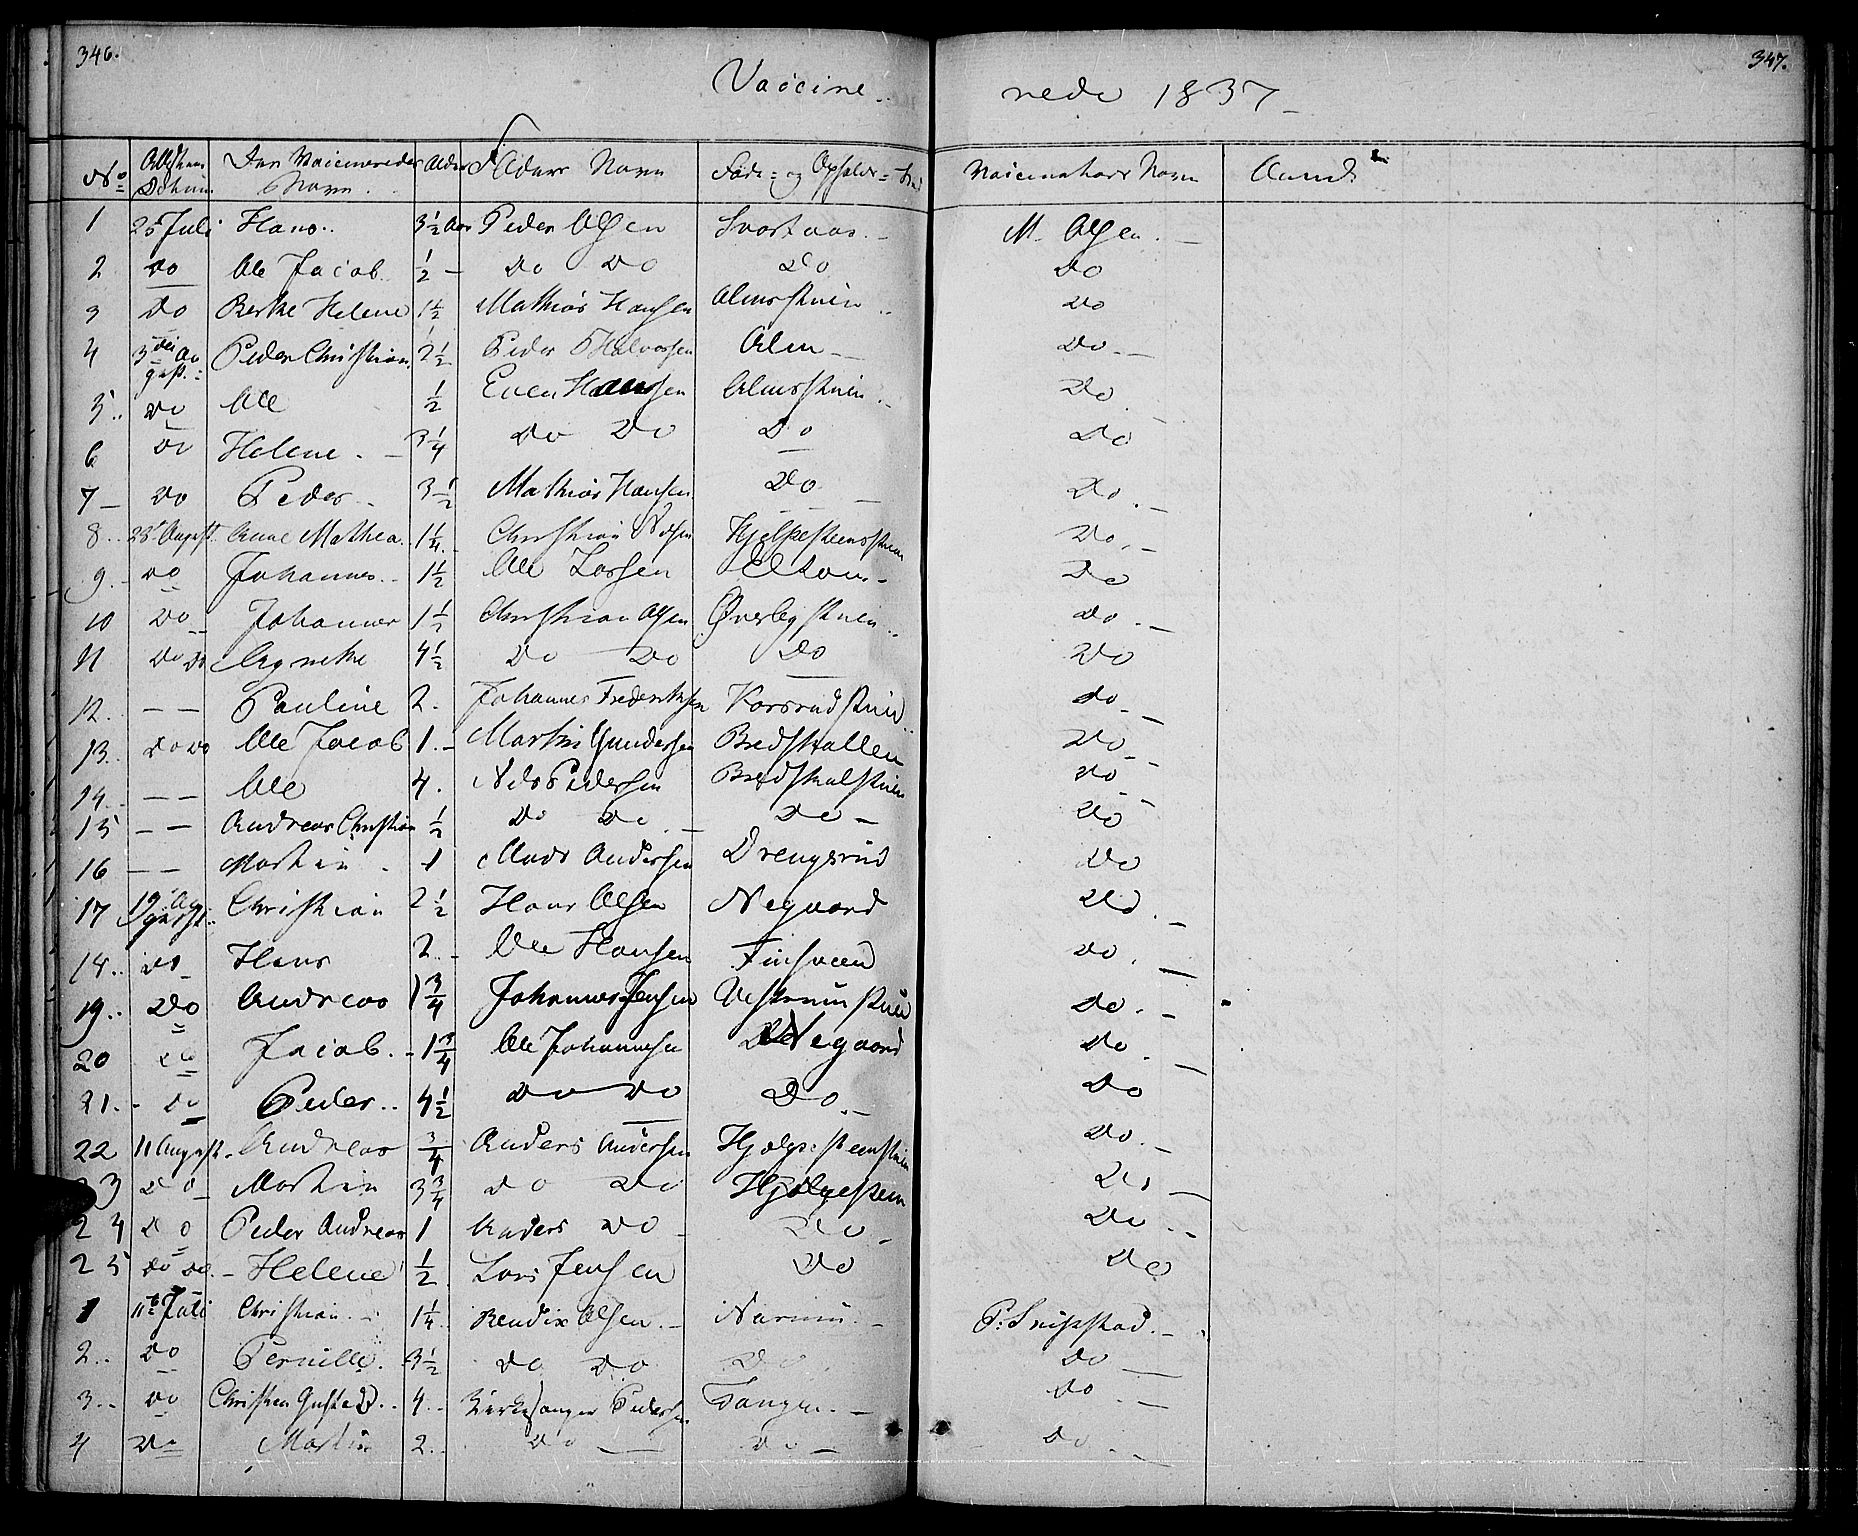 346.
347.
Vaccine- rede 1837
No Attestens Datum Den Vaccineredes Navn. Alder Faders Navn Føde- og Opholds-Sted Vaccinateurs Navn Anm.
1 25 Juli Hans.. 3½ Aar Peder Olsen Svartaas.- M. Olsen.-
2 Do Ole Jacob ½- Do Do Do Do
3 Do Berthe Helene 1½ Mathias Hansen Almsstuen Do
4 5die August.- Peder Christian 2½ Peder Halvorsen Alm- Do.-
5.. Do Ole ½ Even Hansen Almsstuen. Do.-
6 Do Helene.- 3¼ Do Do Do Do
7- Do Peder. 3½ Mathias Hansen Do Do.-
8.. 25 August Anne Mathea. 1¼ Christian Nilsen Hjelpesteensstuen Do.-
9.- Do Johannes.- 1½ Ole Larsen Do
10 Do Johannes 1½ Christian Olsen Øverbystuen.. Do.-
11 Do Do Agnethe 4½ Do Do Do Do
12. - - Pauline 2. Johannes Frederiksen Korsrudstuen Do.-
13.. Do Do Ole Jacob 1.- Martin Gundersen Bredshallen Do.-
14.. - - Ole 4. Nils Pedersen Do-
15 - - Andreas Christian ½ Do Do.- Do- Do
16 - - Martin 1 Mads Andersen Drengsrud Do
17 19 August.. Christian 2½ Hans Olsen Negaard Do.-
18.. Do Hans 2.- Ole Hansen Finsveen Do.-
19.. Do Andreas 1¾ Johannes Jensen Do.-
20 Do Jacob.- 1¾ Ole Johannesen Negaard Do.-
21.- Do Peder.. 4½ Do Do Do.- Do
22 11 August. Andreas ¾ Anders Andersen Hjelpesteenstuen Do.-
23 Do Martin 3¾ Do Do Hjelpesteen Do-
24 Do Peder Andreas 1 Anders Do Do- Do.-
25 Do Do.- Helene ½ Lars Jensen Do Do
1 11te Juli Christian.- 1¼ Bendix Olsen.- Narum.- P: Snipstad.-
2.. Do Pernille. 3½ Do Do Do. Do-
3.. Do Christian Gustav.. 4.. Kirkesanger Pedersen Tangen.- Do.-
4 Do Martin 2.. Do- Do- Do.-